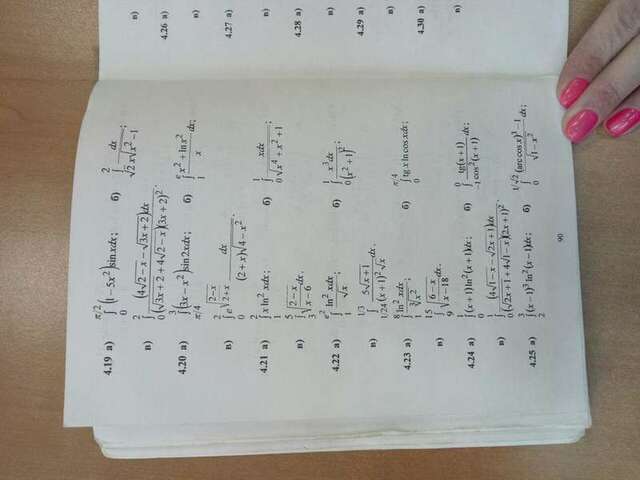 4.19 а) ∫₀^{π/2} (1−5x²)sin x dx; б) ∫_{√2}^{2} dx/(x√(x²−1));
в) ∫₀^{2} (4√(2−x) − √(3x+2))dx / ((√(3x+2) + 4√(2−x))(3x+2)²).
4.20 а) ∫_{π/4}^{3} (3x−x²)sin 2x dx; б) ∫₁^{e} (x²+ln x²)/x dx;
в) ∫₀^{2} e^{√((2−x)/(2+x))} dx/((2+x)√(4−x²)).
4.21 а) ∫₁^{2} x ln² x dx; б) ∫₀^{1} x dx/√(x⁴+x²+1);
в) ∫₃^{5} √((2−x)/(x−6)) dx.
4.22 а) ∫₁^{e²} ln² x dx/√x; б) ∫₀^{1} x³dx/(x²+1)²;
в) ∫_{1/24}^{1/3} 5√(x+1)/((x+1)²√x) dx.
4.23 а) ∫₁^{8} ln² x dx/∛x²; б) ∫₀^{π/4} tg x ln cos x dx;
в) ∫₉^{15} √((6−x)/(x−18)) dx.
4.24 а) ∫₀^{2} (x+1)ln²(x+1)dx; б) ∫_{−1}^{0} tg(x+1)/cos²(x+1) dx;
в) ∫₀^{1} (4√(1−x) − √(2x+1))dx / ((√(2x+1) + 4√(1−x))(2x+1)²).
4.25 а) ∫₂^{3} (x−1)³ ln²(x−1)dx; б) ∫₀^{1/√2} ((arccos x)³ −1)/√(1−x²) dx;
90
в)
4.26 а)
в)
4.27 а)
в)
4.28 а)
в)
4.29 а)
в)
4.30 а)
в)